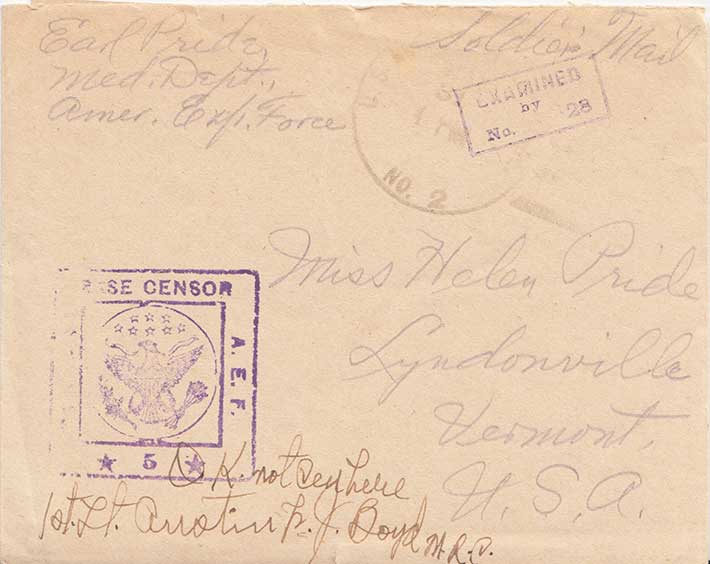 Earl Pride,
Med. Dept.,
Amer. Exp. Force
Soldier's Mail
EXAMINED
by
No. 28
NO. 2
Miss Helen Pride
Lyndonville
Vermont.
U. S. A.
BASE CENSOR
A. E. F.
5
O.K.
1st. Lt. Austin J. Boyd M.R.C.